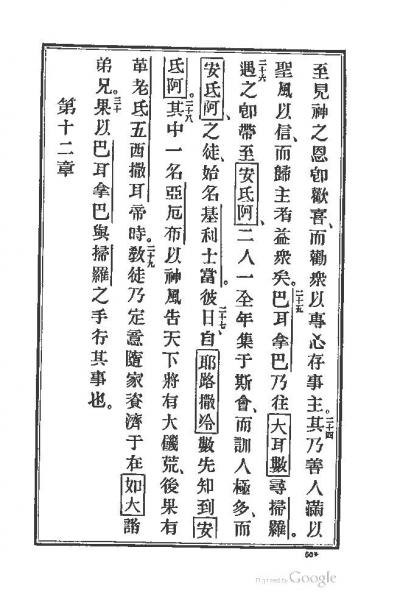 至見神之恩卽歡喜、而勸衆以專心存事主。二十四其乃善人滿以
聖風以信、而歸主者益衆矣。二十五巴耳拿巴乃往大耳數尋掃羅。
二十六遇之卽帶至安氐阿、二人一全年集于斯會、而訓人極多、而
安氐阿、之徒、始名基利士當。二十七彼日、自耶路撒冷數先知到安
氐阿。二十八其中一名亞厄布以神風告天下將有大饑荒、後果有
革老氐五西撒耳帝時。二十九敎徒乃定意隨家資濟于在如大諸
弟兄。三十果以巴耳拿巴與掃羅之手行其事也。
第十二章
Digitized by Google